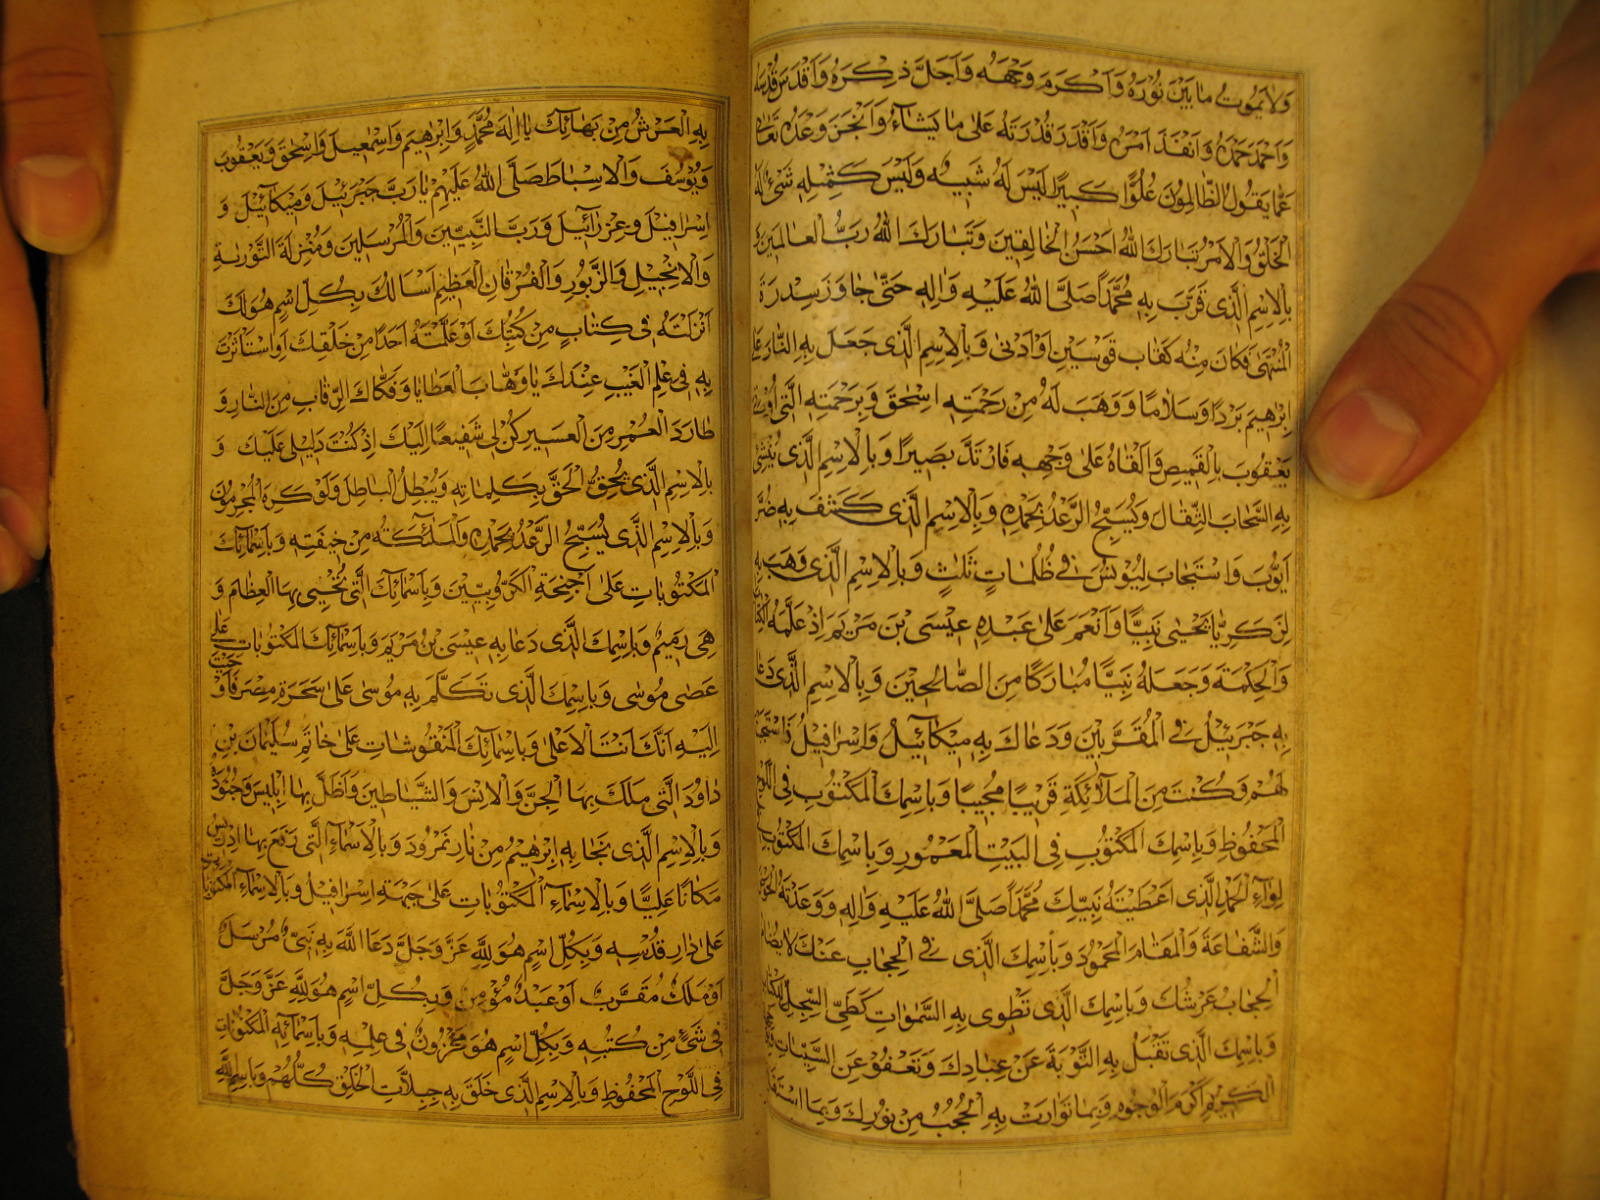 وَلَا يَمُوتُ مَا بَيْنَ نُوْرُهُ وَاَكْرَمَ وَجْهَهُ وَاَجَلَّ ذِكْرَهُ وَاَقْدَسَ قُدْسَهُ
وَاَحْمَدَ حَمْدَهُ وَاَنْفَذَ اَمْرَهُ وَاَقْدَرَ قُدْرَتَهُ عَلٰى مَا يَشَاءُ وَاَنْجَزَ وَعْدَهُ تَعَالٰى
عَمَّا يَقُولُ الظَّالِمُونَ عُلُوًّا كَبِيرًا لَيْسَ لَهُ شَبِيهٌ وَلَيْسَ كَمِثْلِهِ شَىْءٌ لَهُ
الْخَلْقُ وَالْاَمْرُ تَبَارَكَ اللّٰهُ اَحْسَنُ الْخَالِقِينَ وَتَبَارَكَ اللّٰهُ رَبُّ الْعَالَمِينَ
بِالْاِسْمِ الَّذِى قَرَّبْتَ بِهِ مُحَمَّدًا صَلَّى اللّٰهُ عَلَيْهِ وَاٰلِهِ حَتّٰى جَاوَزَ سِدْرَةَ
الْمُنْتَهٰى فَكَانَ مِنْهُ كَقَابِ قَوْسَيْنِ اَوْ اَدْنٰى وَبِالْاِسْمِ الَّذِى جَعَلَ بِهِ النَّارَ عَلٰى
اِبْرٰهِيمَ بَرْدًا وَسَلَامًا وَوَهَبَ لَهُ مِنْ رَحْمَتِهِ اِسْحٰقَ وَبِرَحْمَتِهِ الَّتِى اُوْتِىَ
يَعْقُوبَ بِالْقَمِيصِ وَاَلْقَاهُ عَلٰى وَجْهِهِ فَارْتَدَّ بَصِيرًا وَبِالْاِسْمِ الَّذِى يُنْشِئُ
بِهِ السَّحَابَ الثِّقَالَ وَيُسَبِّحُ الرَّعْدُ بِحَمْدِهِ وَبِالْاِسْمِ الَّذِى كَشَفَ بِهِ ضُرَّ
اَيُّوبَ وَاسْتَجَابَ لِيُونُسَ فِى ظُلُمَاتٍ ثَلٰثٍ وَبِالْاِسْمِ الَّذِى وَهَبَ بِهِ
لِزَكَرِيَّا يَحْيٰى نَبِيًّا وَاَنْعَمَ عَلٰى عَبْدِهِ عِيْسَى بْنِ مَرْيَمَ اِذْ عَلَّمَهُ الْكِتَابَ
وَالْحِكْمَةَ وَجَعَلَهُ نَبِيًّا مُبَارَكًا مِنَ الصَّالِحِينَ وَبِالْاِسْمِ الَّذِى دَعَا
بِهِ جَبْرَئِيلُ فِى الْمُقَرَّبِينَ وَدَعَاكَ بِهِ مِيكَائِيلُ وَاِسْرَافِيلُ فَاسْتَجَبْتَ
لَهُمْ وَكُنْتَ مِنَ الْمَلَائِكَةِ قَرِيبًا مُجِيبًا وَبِاسْمِكَ الْمَكْتُوبِ فِى اللَّوْحِ
الْمَحْفُوظِ وَبِاسْمِكَ الْمَكْتُوبِ فِى الْبَيْتِ الْمَعْمُورِ وَبِاسْمِكَ الْمَكْتُوبِ
لِوَاءِ الْحَمْدِ الَّذِى اَعْطَيْتَهُ نَبِيَّكَ مُحَمَّدًا صَلَّى اللّٰهُ عَلَيْهِ وَاٰلِهِ وَوَعَدْتَهُ الْحَوْضَ
وَالشَّفَاعَةَ وَالْمَقَامَ الْمَحْمُودَ وَبِاسْمِكَ الَّذِى فِى الْحِجَابِ عِنْدَكَ لَا يُضَامُ
الْحِجَابُ عَرْشُكَ وَبِاسْمِكَ الَّذِى تَطْوِى بِهِ السَّمٰوَاتِ كَطَىِّ السِّجِلِّ لِلْكِتَابِ
وَبِاسْمِكَ الَّذِى تَقْبَلُ بِهِ التَّوْبَةَ عَنْ عِبَادِكَ وَتَعْفُوْ عَنِ السَّيِّئَاتِ
الْكَرِيمِ اَكْرَمَ الْوُجُوهِ وَبِمَا تَوَارَتْ بِهِ الْحُجُبُ مِنْ نُوْرِكَ وَبِمَا اسْتَقَلَّ
بِهِ الْعَرْشُ مِنْ بَهَائِكَ يَا اِلٰهَ مُحَمَّدٍ وَاِبْرٰهِيمَ وَاِسْمٰعِيلَ وَاِسْحٰقَ وَيَعْقُوبَ
وَيُوسُفَ وَالْاَسْبَاطِ صَلَّى اللّٰهُ عَلَيْهِمْ يَا رَبَّ جَبْرَئِيلَ وَمِيكَائِيلَ وَ
اِسْرَافِيلَ وَعِزْرَائِيلَ وَرَبَّ النَّبِيِّينَ وَالْمُرْسَلِينَ وَمُنْزِلَ التَّوْرٰيةِ
وَالْاِنْجِيلِ وَالزَّبُورِ وَالْفُرْقَانِ الْعَظِيمِ اَسْاَلُكَ بِكُلِّ اسْمٍ هُوَ لَكَ
اَنْزَلْتَهُ فِى كِتَابٍ مِنْ كُتُبِكَ اَوْ عَلَّمْتَهُ اَحَدًا مِنْ خَلْقِكَ اَوِ اسْتَأْثَرْتَ
بِهِ فِى عِلْمِ الْغَيْبِ عِنْدَكَ يَا وَهَّابَ الْعَطَايَا وَفَكَّاكَ الرِّقَابِ مِنَ النَّارِ وَ
طَارِدَ الْعُسْرِ مِنَ الْعَسِيرِ كُنْ لِى شَفِيعًا اِلَيْكَ اِذْ كُنْتَ دَلِيلِى عَلَيْكَ وَ
بِالْاِسْمِ الَّذِى يُحِقُّ الْحَقَّ بِكَلِمَاتِهِ وَيُبْطِلُ الْبَاطِلَ وَلَوْ كَرِهَ الْمُجْرِمُونَ
وَبِالْاِسْمِ الَّذِى يُسَبِّحُ الرَّعْدُ بِحَمْدِهِ وَالْمَلٰئِكَةُ مِنْ خِيفَتِهِ وَبِاَسْمَائِكَ
الْمَكْتُوبَاتِ عَلٰى اَجْنِحَةِ الْكَرُّوبِيِّينَ وَبِاَسْمَائِكَ الَّتِى تُحْيِى بِهَا الْعِظَامَ وَ
هِىَ رَمِيمٌ وَبِاسْمِكَ الَّذِى دَعَا بِهِ عِيْسَى بْنُ مَرْيَمَ وَبِاَسْمَائِكَ الْمَكْتُوبَاتِ عَلٰى
عَصٰى مُوسٰى وَبِاسْمِكَ الَّذِى تَكَلَّمَ بِهِ مُوسٰى عَلٰى سَحَرَةِ مِصْرَ فَاَوْحَيْتَ
اِلَيْهِ اَنَّكَ اَنْتَ الْاَعْلٰى وَبِاَسْمَائِكَ الْمَنْقُوشَاتِ عَلٰى خَاتَمِ سُلَيْمَانَ بْنِ
دَاوُدَ الَّتِى مَلَكَ بِهَا الْجِنَّ وَالْاِنْسَ وَالشَّيَاطِينَ وَاَذَلَّ بِهَا اِبْلِيسَ وَجُنُودَهُ
وَبِالْاِسْمِ الَّذِى نَجَا بِهِ اِبْرٰهِيمُ مِنْ نَارِ نَمْرُودَ وَبِالْاَسْمَاءِ الَّتِى رُفِعَ بِهَا اِدْرِيسُ
مَكَانًا عَلِيًّا وَبِالْاَسْمَاءِ الْمَكْتُوبَاتِ عَلٰى جَبْهَةِ اِسْرَافِيلَ وَبِالْاَسْمَاءِ الْمَكْتُوبَاتِ
عَلٰى دَارِ قُدْسِهِ وَبِكُلِّ اسْمٍ هُوَ لِلّٰهِ عَزَّ وَجَلَّ دَعَا اللّٰهَ بِهِ نَبِىٌّ مُرْسَلٌ
اَوْ مَلَكٌ مُقَرَّبٌ اَوْ عَبْدٌ مُؤْمِنٌ وَبِكُلِّ اسْمٍ هُوَ لِلّٰهِ عَزَّ وَجَلَّ
فِى شَىْءٍ مِنْ كُتُبِهِ وَبِكُلِّ اسْمٍ هُوَ مَخْزُونٌ فِى عِلْمِهِ وَبِاَسْمَائِهِ الْمَكْتُوبَاتِ
فِى اللَّوْحِ الْمَحْفُوظِ وَبِالْاِسْمِ الَّذِى خَلَقَ بِهِ جِبِلَّاتِ الْخَلْقِ كُلِّهِمْ وَبِاسْمِ اللّٰهِ